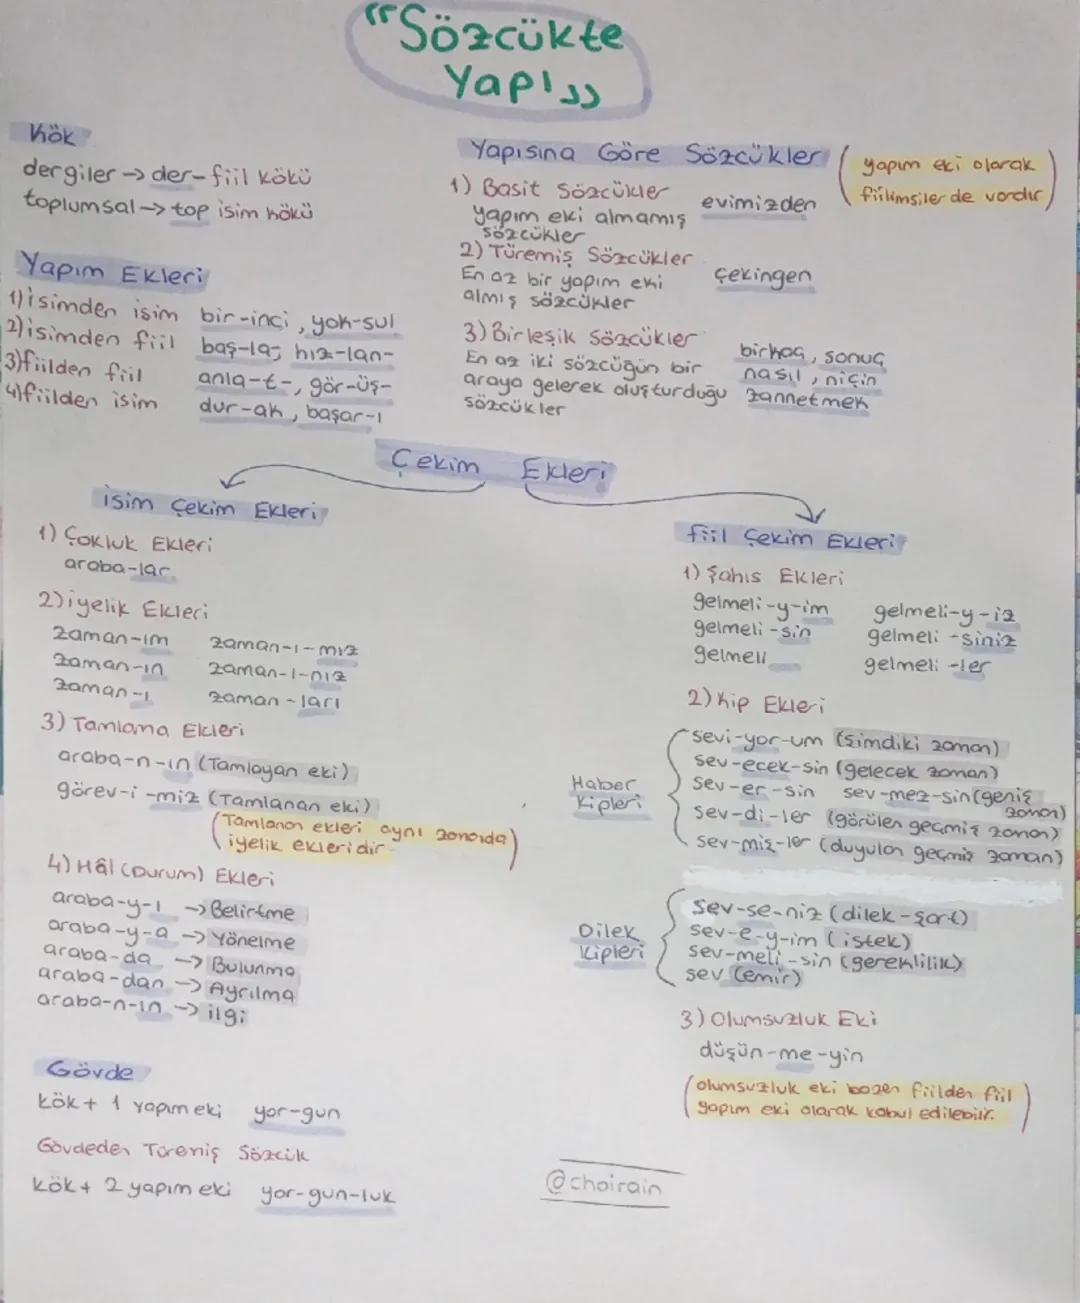 "Sözcükte
Yapı"
Kök
dergiler → der- fiil kökü
toplumsal → top isim kökü
Yapım Ekleri
1) isimden isim bir-inci, yok-sul
2) isimden fiil baş-la-, hız-lan-
3) fiilden fiil anla-t-, gör-üş-
4) fiilden isim dur-ak, başar-ı
Yapısına Göre Sözcükler
(yapım eki olarak
fiilimsiler de vardır)
1) Basit Sözcükler
yapım eki almamış evimizden
sözcükler
2) Türemiş Sözcükler
En az bir yapım eki çekingen
almış sözcükler
3) Birleşik Sözcükler
En az iki sözcüğün bir birkaç, sonuç
araya gelerek oluşturduğu nasıl, niçin
sözcükler zannetmek
Çekim Ekleri
isim Çekim Ekleri
1) Çokluk Ekleri
araba-lar
2) iyelik Ekleri
zaman-ım zaman-ı-mız
zaman-ın zaman-ı-nız
zaman-ı zaman-ları
3) Tamlama Ekleri
araba-n-ın (Tamlayan eki)
görev-i-miz (Tamlanan eki)
(Tamlanan ekleri aynı zamanda
iyelik ekleridir)
4) Hâl (Durum) Ekleri
araba-y-ı → Belirtme
araba-y-a → Yönelme
araba-da → Bulunma
araba-dan → Ayrılma
araba-n-ın → ilgi
Gövde
kök + 1 yapım eki yor-gun
Gövdeden Türemiş Sözcük
kök + 2 yapım eki yor-gun-luk
fiil Çekim Ekleri
1) Şahıs Ekleri
gelmeli-y-im gelmeli-y-iz
gelmeli-sin gelmeli-siniz
gelmeli gelmeli-ler
2) Kip Ekleri
Haber
Kipleri
sevi-yor-um (şimdiki zaman)
sev-ecek-sin (gelecek zaman)
sev-er-sin sev-mez-sin (geniş
zaman)
sev-di-ler (görülen geçmiş zaman)
sev-miş-ler (duyulan geçmiş zaman)
Dilek
Kipleri
sev-se-niz (dilek-şart)
sev-e-y-im (istek)
sev-meli-sin (gereklilik)
sev (emir)
3) Olumsuzluk Eki
düşün-me-yin
(olumsuzluk eki bazen fiilden fiil
yapım eki olarak kabul edilebilir.)
@choirain